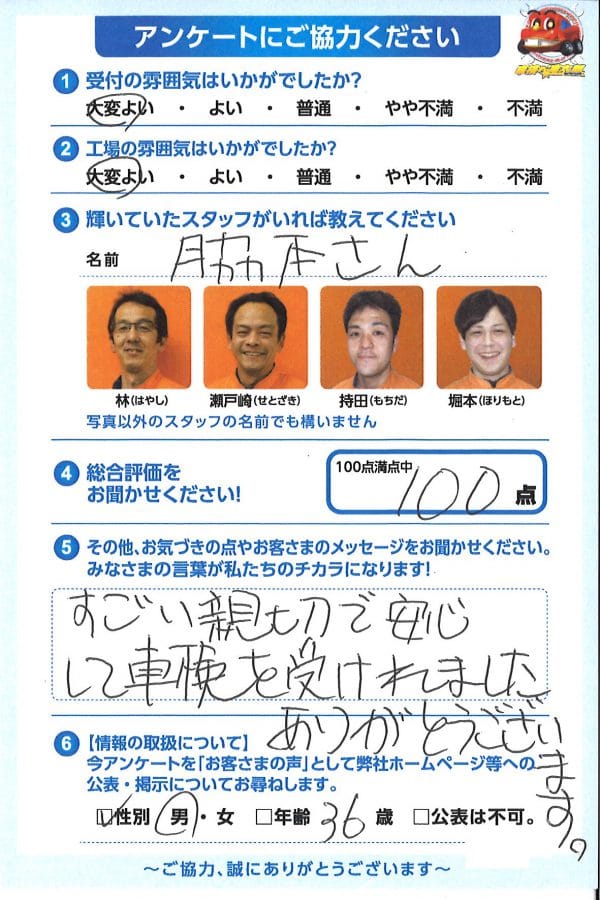 アンケートにご協力ください
1 受付の雰囲気はいかがでしたか?
大変よい ・ よい ・ 普通 ・ やや不満 ・ 不満
2 工場の雰囲気はいかがでしたか?
大変よい ・ よい ・ 普通 ・ やや不満 ・ 不満
3 輝いていたスタッフがいれば教えてください
名前 脇本さん
林(はやし) 瀬戸崎(せとざき) 持田(もちだ) 堀本(ほりもと)
写真以外のスタッフの名前でも構いません
4 総合評価を
お聞かせください!
100点満点中
100 点
5 その他、お気づきの点やお客さまのメッセージをお聞かせください。
みなさまの言葉が私たちのチカラになります!
すごい親切で安心
して車検を受けれました
ありがとうございます。
6 【情報の取扱について】
今アンケートを「お客さまの声」として弊社ホームページ等への
公表・掲示についてお尋ねします。
☑性別 男・女 □年齢 36 歳 □公表は不可。
〜ご協力、誠にありがとうございます〜